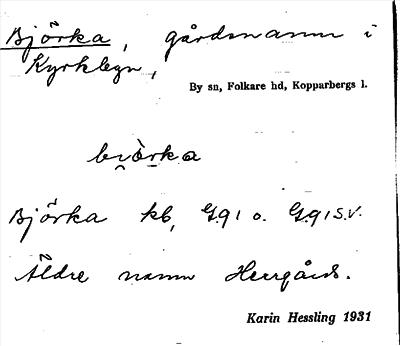 Björka, gårdsnamn i
Kyrkbyn,
By sn, Folkare hd, Kopparbergs l.
biò̀rka
Björka kb, G.91 o. G.91 s.v.
Äldre namn Herrgård.
Karin Hessling 1931